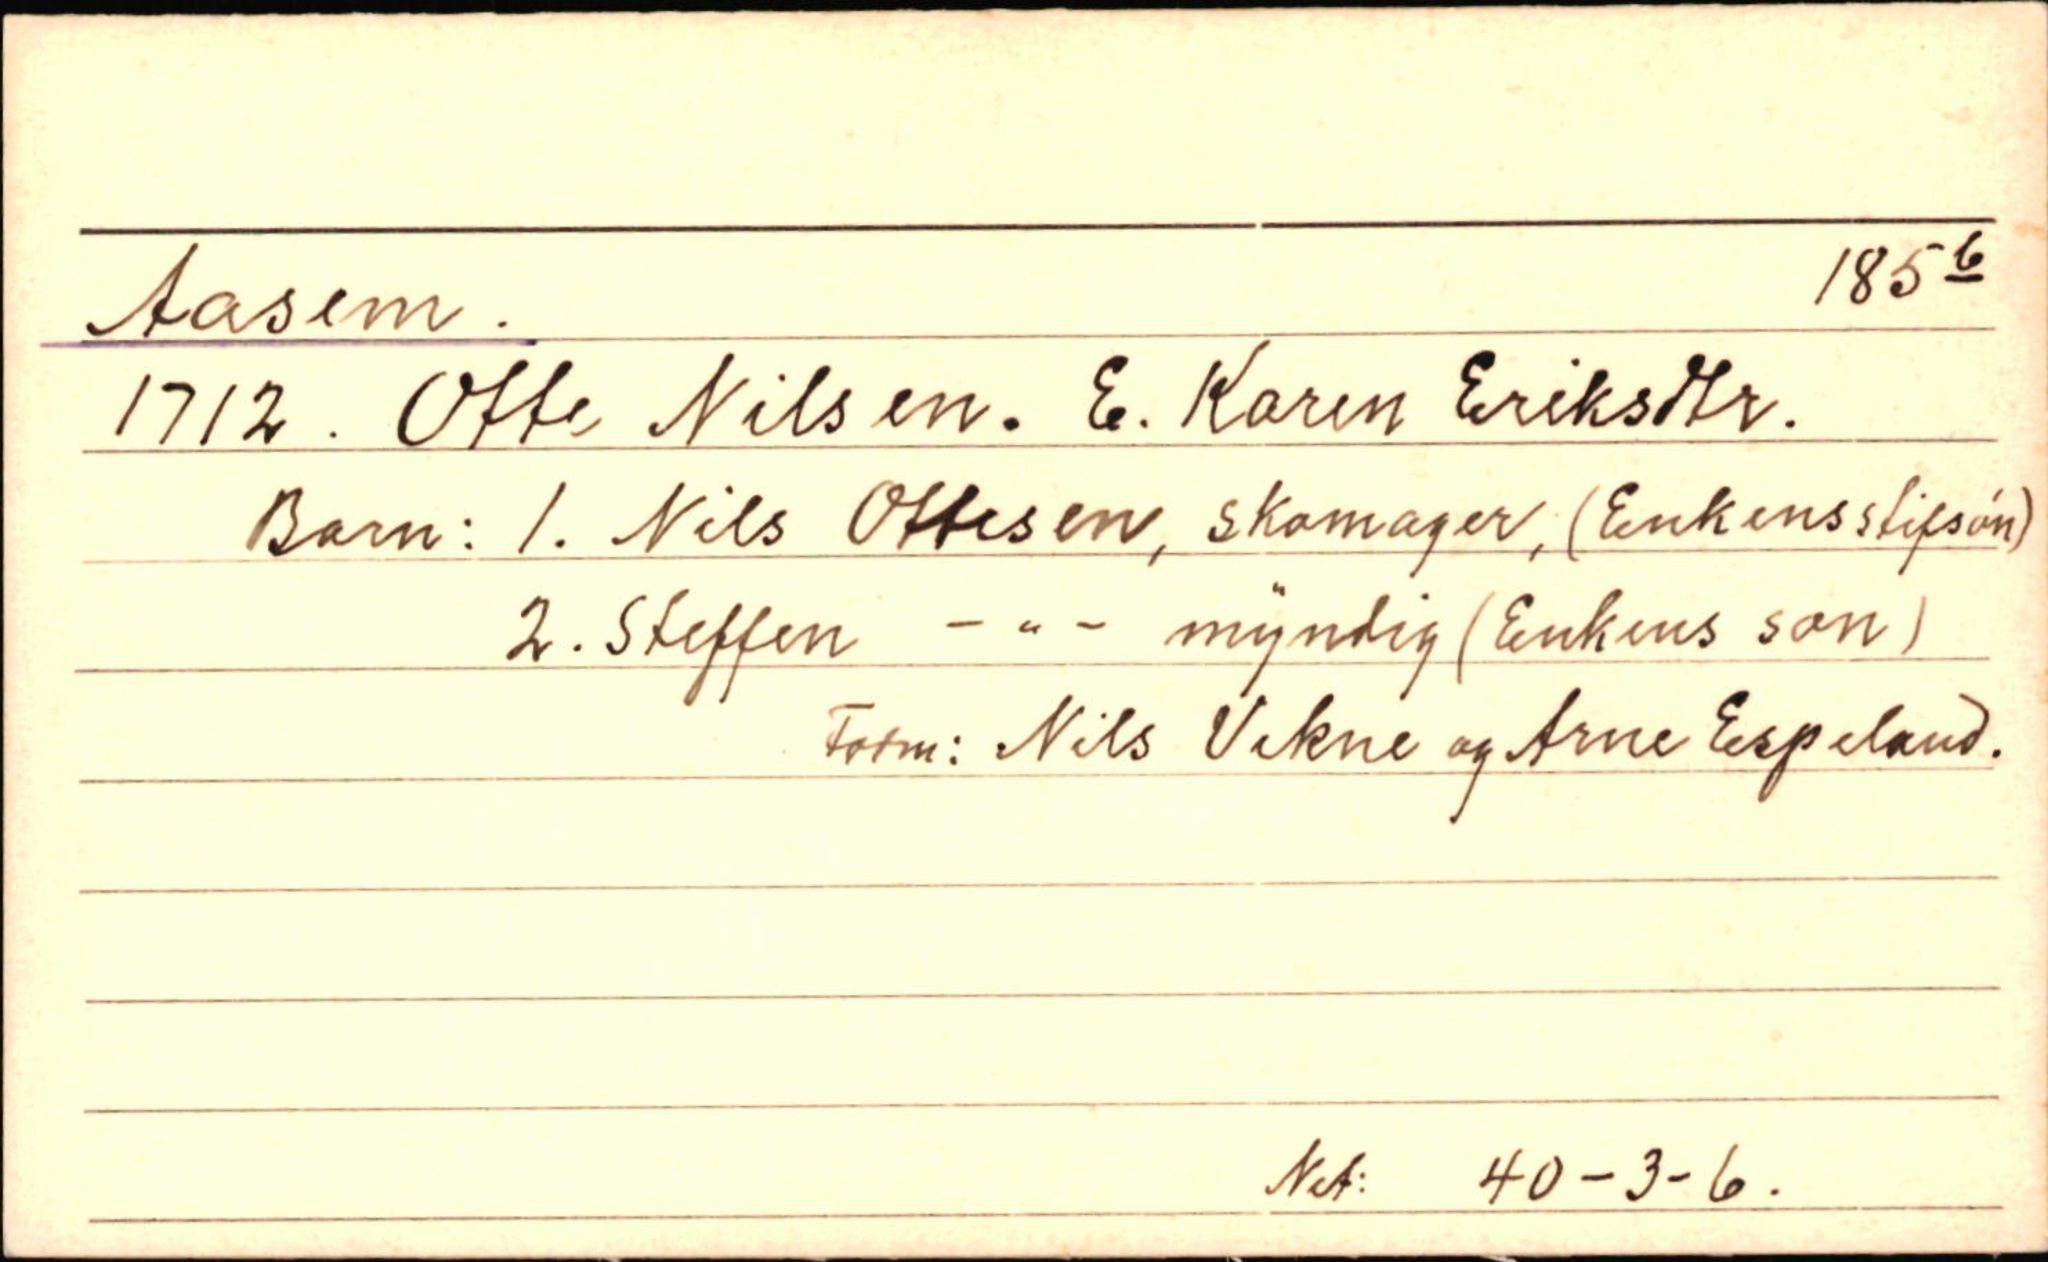 Aasem. 185 6
1712. Otte Nilsen. E. Karen Eriksdtr.
Barn: 1. Nils Ottesen, skomager, (Enkens stifsón)
2. Steffen - " - mÿndig (Enkens son)
Form: Nils Vikne og Arne Espeland.
Net: 40-3-6.